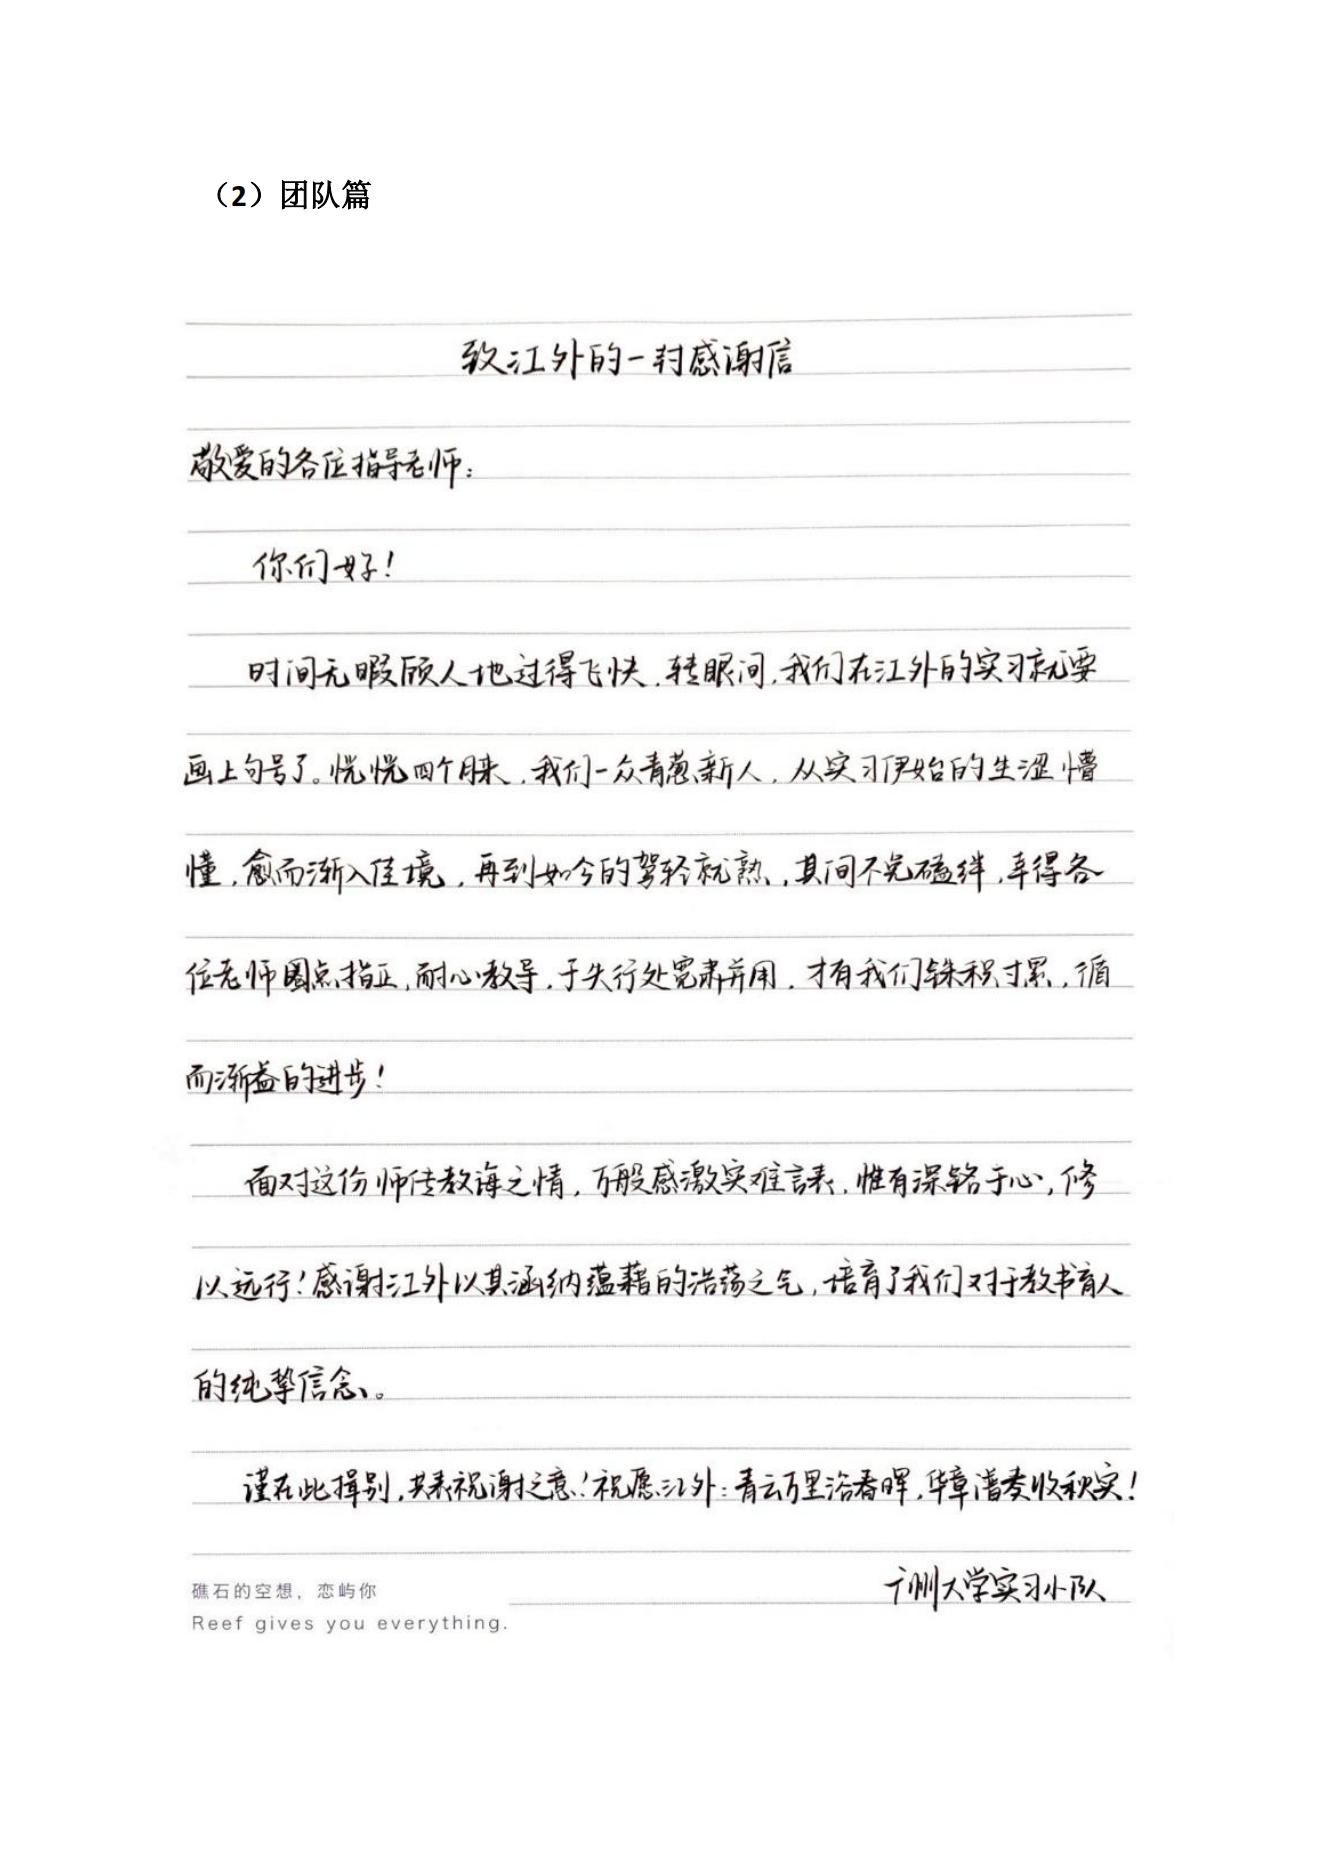 （2）团队篇
致江外的一封感谢信
敬爱的各位指导老师：
你们好！
时间无暇顾人地过得飞快，转眼间，我们在江外的实习就要
画上句号了。恍恍四个月来，我们一众青葱新人，从实习伊始的生涩懵
懂，愈而渐入佳境，再到如今的驾轻就熟，其间不免磕绊，幸得各
位老师圈点指正，耐心教导，于失行处宽肃并用，才有我们铢积寸累，循
而渐益的进步！
面对这份师传教诲之情，万般感激实难言表，惟有深铭于心，修
以远行！感谢江外以其涵纳蕴藉的浩荡之气，培育了我们对于教书育人
的纯挚信念。
谨在此揖别，共表祝谢之意！祝愿江外：青云万里浴春晖，华章谱麦收秋实！
广州大学实习小队
礁石的空想，恋屿你
Reef gives you everything.